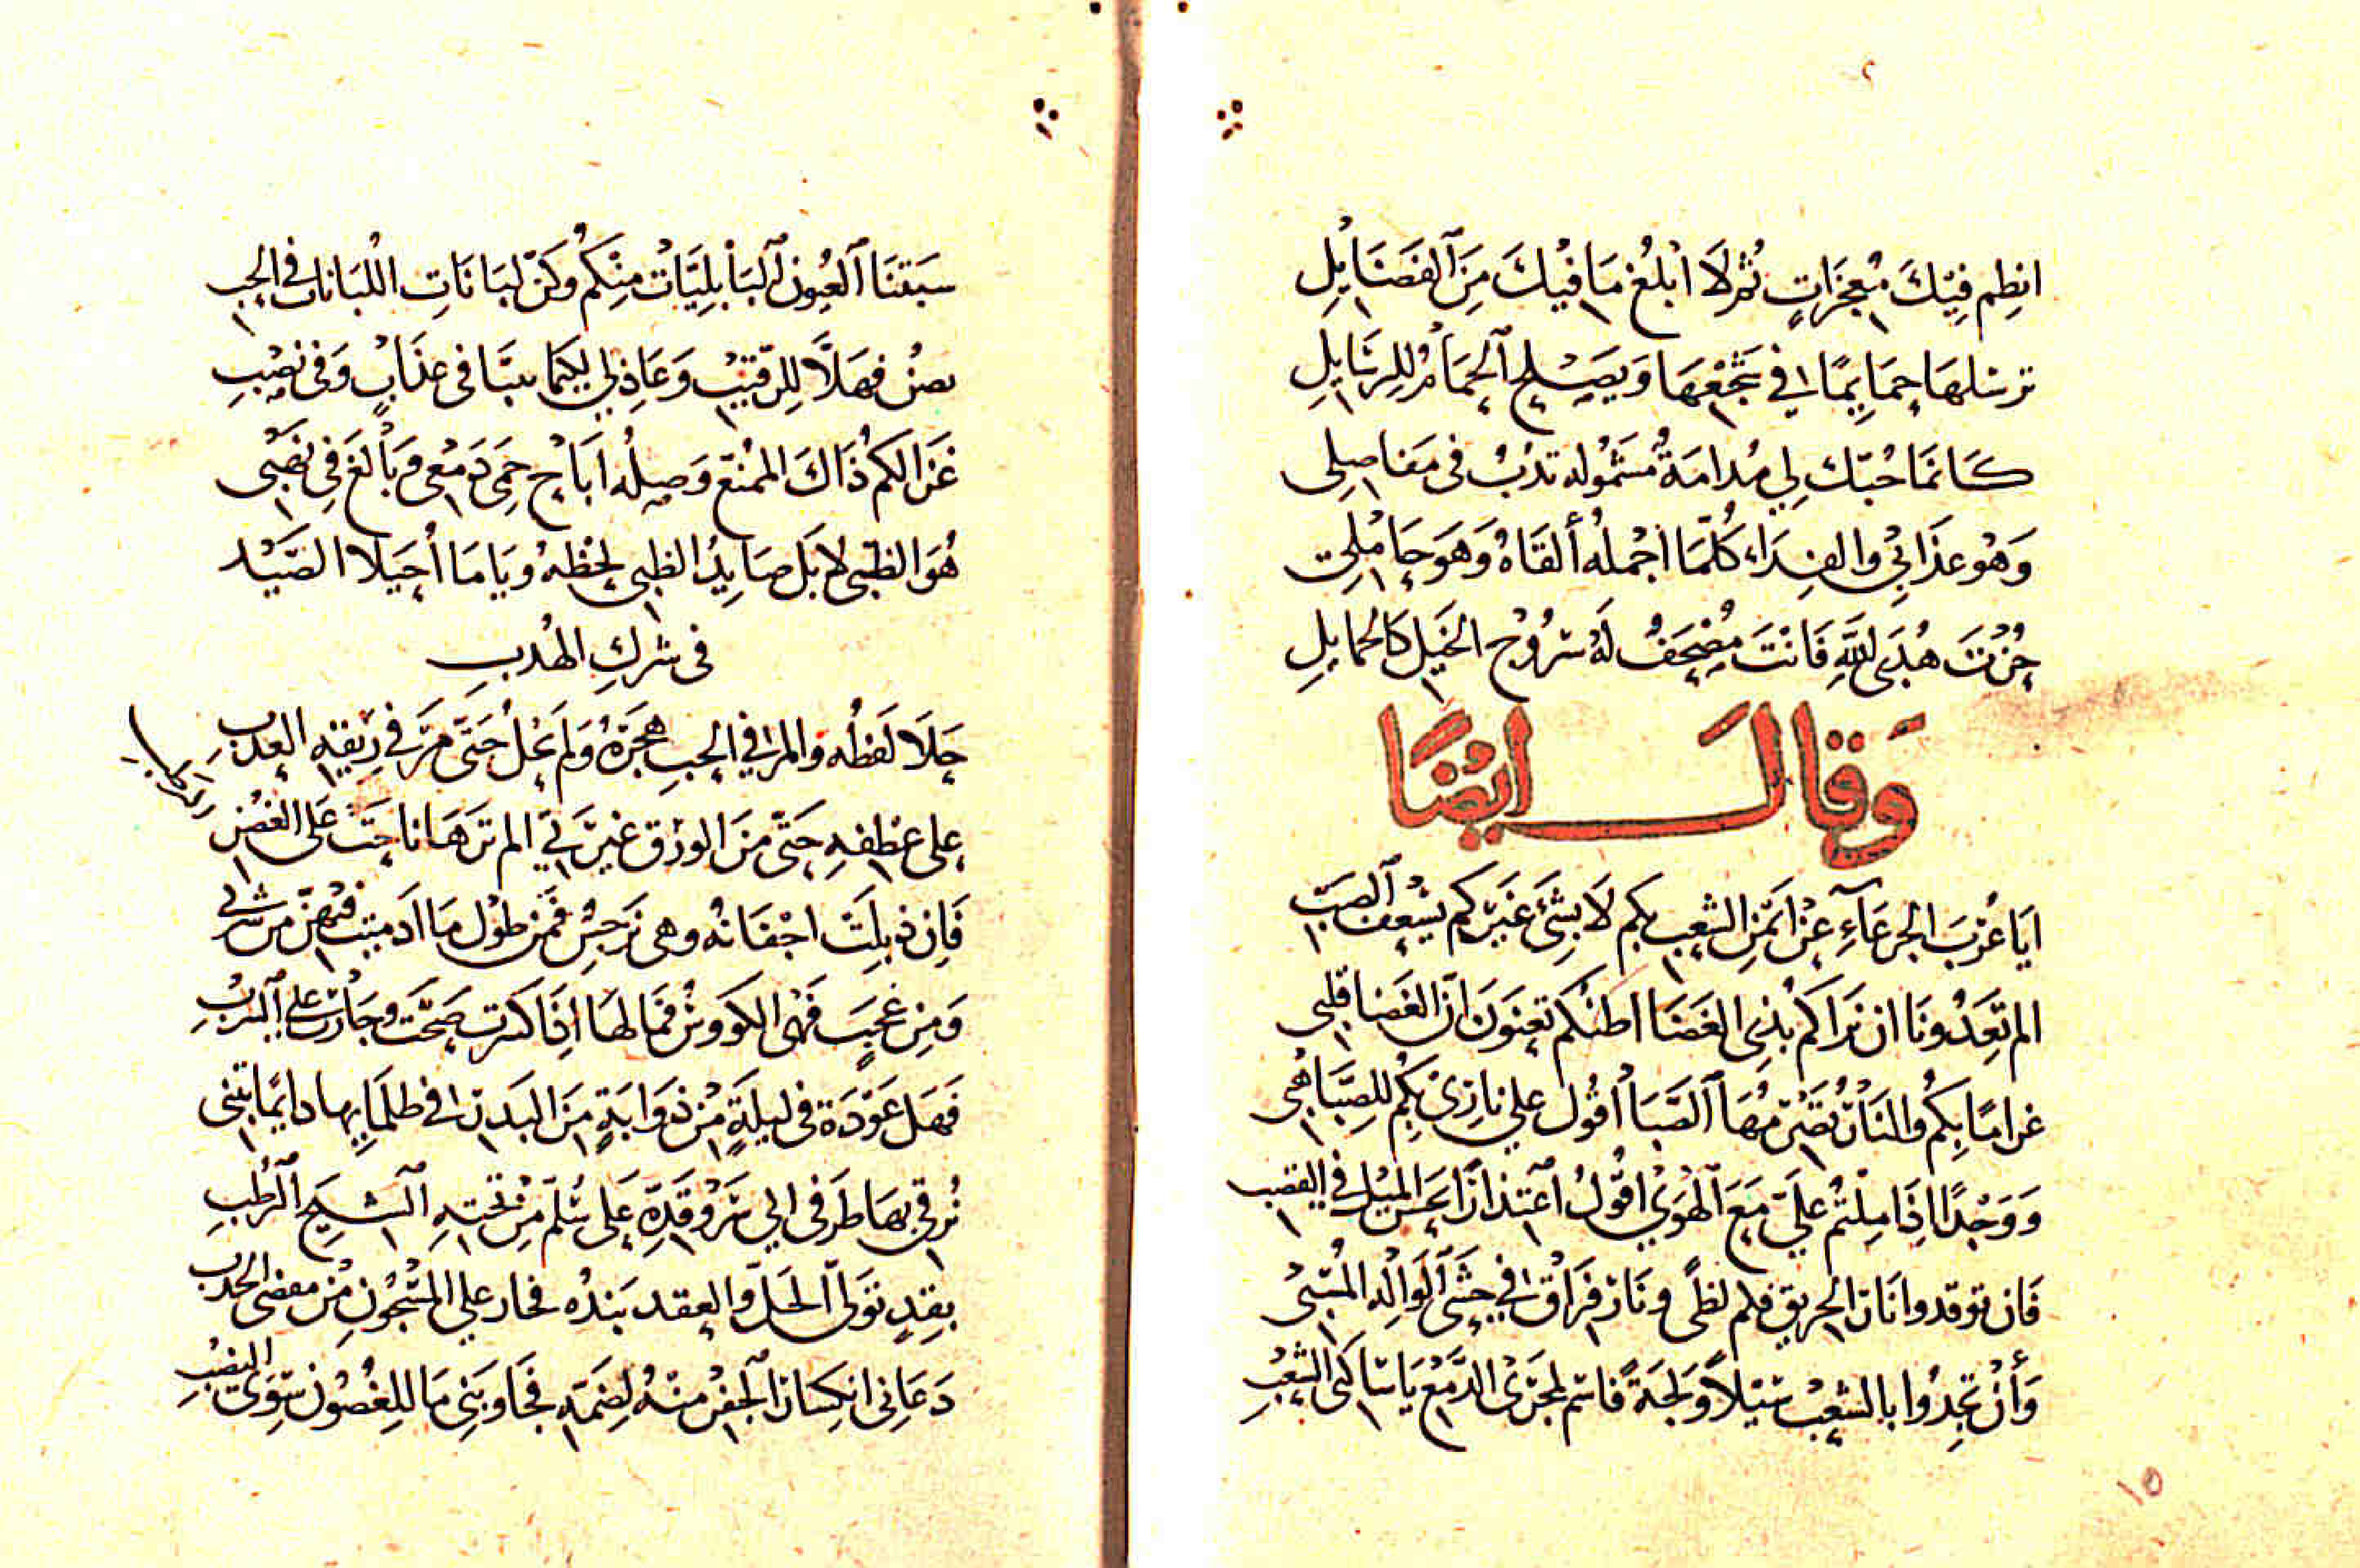 انظم فِيْكَ مُعجزَاتٍ ثم لَا ابْلغُ مَا فيْكَ مِنَ الفَضَايلِ
ترسلهَا حمَايمًا في سَجْعِهَا وَيصْلح الحمَامُ للرسَايلِ
كَانمَا حُبّك لِي مُدامَةٌ مشمُوله تدبُ في مَفاصِلي
وَهُو عذَابي والفِدَاء كُلّمَا احْملُه ألقَاهُ وَهوَ حَاملي
حُزْتَ هُدَى للهِ فَانتَ مصْحَفٌ لهُ سُرُوْج الخيل كَالحمايلِ
وَقالَ ايضًا
ايَا عُرْبَ الجرعَآءِ عنْ ايمَنِ الشعب بكم لَا بشئَ غيركم يسْعِف الصَبّ
الم تعِدُونَا ان نرَاكُم بذِي الغَضَا اظنكُم تعنوَن انّ الغَضا قلبى
غرامًا بكُم والنَارُ تُضرمُهَا الصَبَا أقُول على نارى بكُم للصّبَا هُبى
وَوَجْدًا اذَا مِلْتُم عليَّ مَعَ الهَوَي اقُولُ اعْتِذارًا يَحسُن الميْل في القضب
فَان توقدوا نَارَ الحريق فلم لظًى ونَارُ فِرَاقي في حَشَى الوَالِه المُسْبى
وَأنْ تجِدُوا بالشعبْ سَيْلًا وَلجَةً فَاسم لمجرَى الدّمْع يَا سَاكنى الشعْبِ
سبَتنَا العُيون البَابليَّات منكم وكنّ لبَانَاتِ اللبَانات في الحب
بصُن فهَلَّا للرّقيبْ وَعَاذلي ليكمَا يبتا في عذَابٍ وَفى نصْبِ
غَزالكم ذَاكَ الممنّع وَصلُه ابَاح حِمَى دَمْعى وبَالغَ فِي نهْبى
هُوَ الظبْى لا بَل صَايدُ الظبى لحظهُ ويَا مَا أُحَيلا الصَّيْد
في شركِ الهُدبِ
حَلَا لَفظُه والمر في الحب هجرُهُ وَلم يَحْلُ حَتى مَرّ في ريْقِه العذب
على عِطفهِ حَتّى منَ الورْق غيرَتي الم ترَهَا ناحَتْ عَلى الغصْن
الرطب
فَإن ذبلَتْ اجْفانهُ وهى نَرجسُ فَمن طوْل مَا ادميت فيهنّ من شربى
وَمِن عَجَبٍ فَهى الكوُوسُ فمَا لهَا اذَا كسَرت صَحَّت وجَارَت على الشربِ
فهَل عَوْدَة في ليلَةٍ مْن ذوَابَةٍ منَ البَدر في ظلمَايها دايمًا تنبى
نُرقي بهَا طرَفى الى سَرْو قَدِّه عَلى سُلّم من تحْتهِ الشيح الرُطبِ
بقدٍ تَولى الحَلّ والعقد بَندُه فجار على المسْجُونِ مْن معضى الحدب
دَعَانى انكِسَارُ الجفن منْهُ لضَمّه فجَاوبَنى مَا للِغصُون سِوَى النصْبِ
١٥